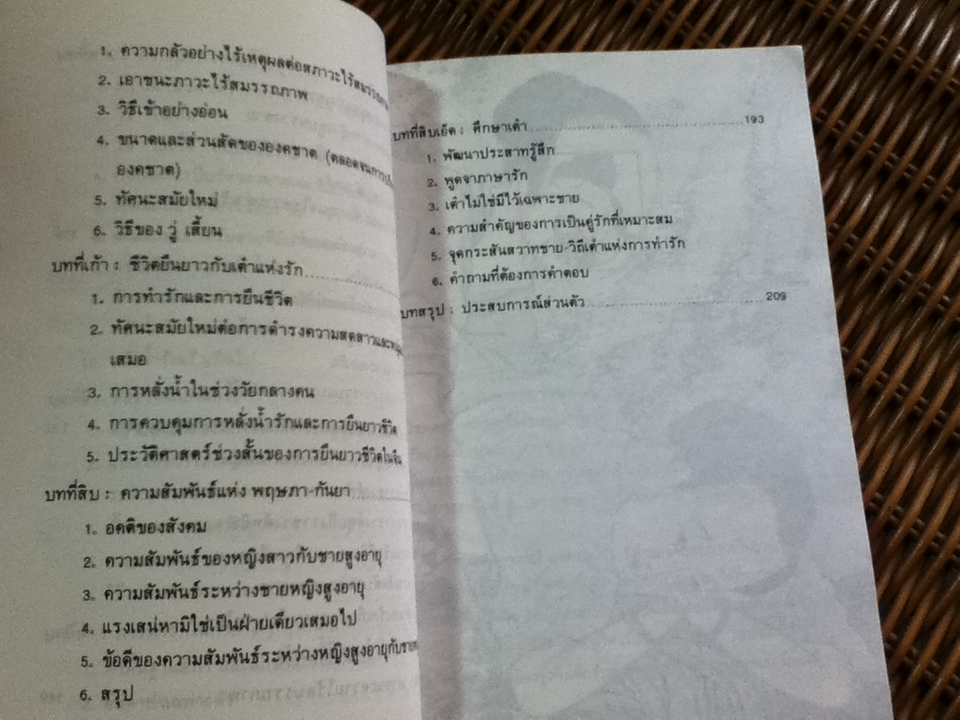 1. ความกลัวอย่างไร้เหตุผลต่อสภาวะไร้สมรรถภาพ
2. เอาชนะภาวะไร้สมรรถภาพ
3. วิธีเข้าอย่างอ่อน
4. ขนาดและส่วนสัดขององคชาต (ตลอดจน
องคชาต)
5. ทัศนะสมัยใหม่
6. วิธีของ วู่ เสี้ยน
บทที่เก้า : ชีวิตยืนยาวกับเต๋าแห่งรัก
1. การทำรักและการยืนชีวิต
2. ทัศนะสมัยใหม่ต่อการดำรงความสดสาวและ
เสมอ
3. การหลั่งน้ำในช่วงวัยกลางคน
4. การควบคุมการหลั่งน้ำรักและการยืนยาวชีวิต
5. ประวัติศาสตร์ช่วงสั้นของการยืนยาวชีวิตในจีน
บทที่สิบ : ความสัมพันธ์แห่ง พฤษภา-กันยา
1. อคติของสังคม
2. ความสัมพันธ์ของหญิงสาวกับชายสูงอายุ
3. ความสัมพันธ์ระหว่างชายหญิงสูงอายุ
4. แรงเสน่หามิใช่เป็นฝ่ายเดียวเสมอไป
5. ข้อดีของความสัมพันธ์ระหว่างหญิงสูงอายุกับชาย
6. สรุป
บทที่สิบเอ็ด : ศึกษาเต๋า 193
1. พัฒนาประสาทรู้สึก
2. พูดจาภาษารัก
3. เต๋าไม่ใช่มีไว้เฉพาะชาย
4. ความสำคัญของการเป็นคู่รักที่เหมาะสม
5. จุดกระสันสวาทชาย-วิถีเต๋าแห่งการทำรัก
6. คำถามที่ต้องการคำตอบ
บทสรุป : ประสบการณ์ส่วนตัว 209